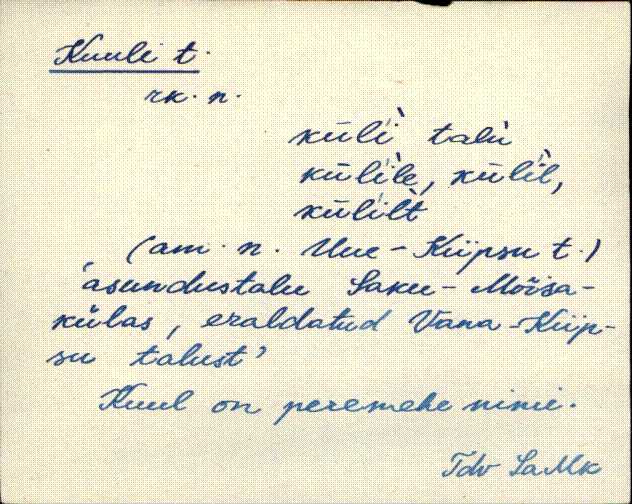 Kuuli t.
rk. n.
kūĺì talù
kūĺìle, kūĺìl,
kūĺìlt
(am. n. Uue-Kiipsu t.)
'asundustalu Saku-Mõisa-
külas, eraldatud Vana-Kiip-
su talust'
Kuul on peremehe nimi.
Tdv SaMk